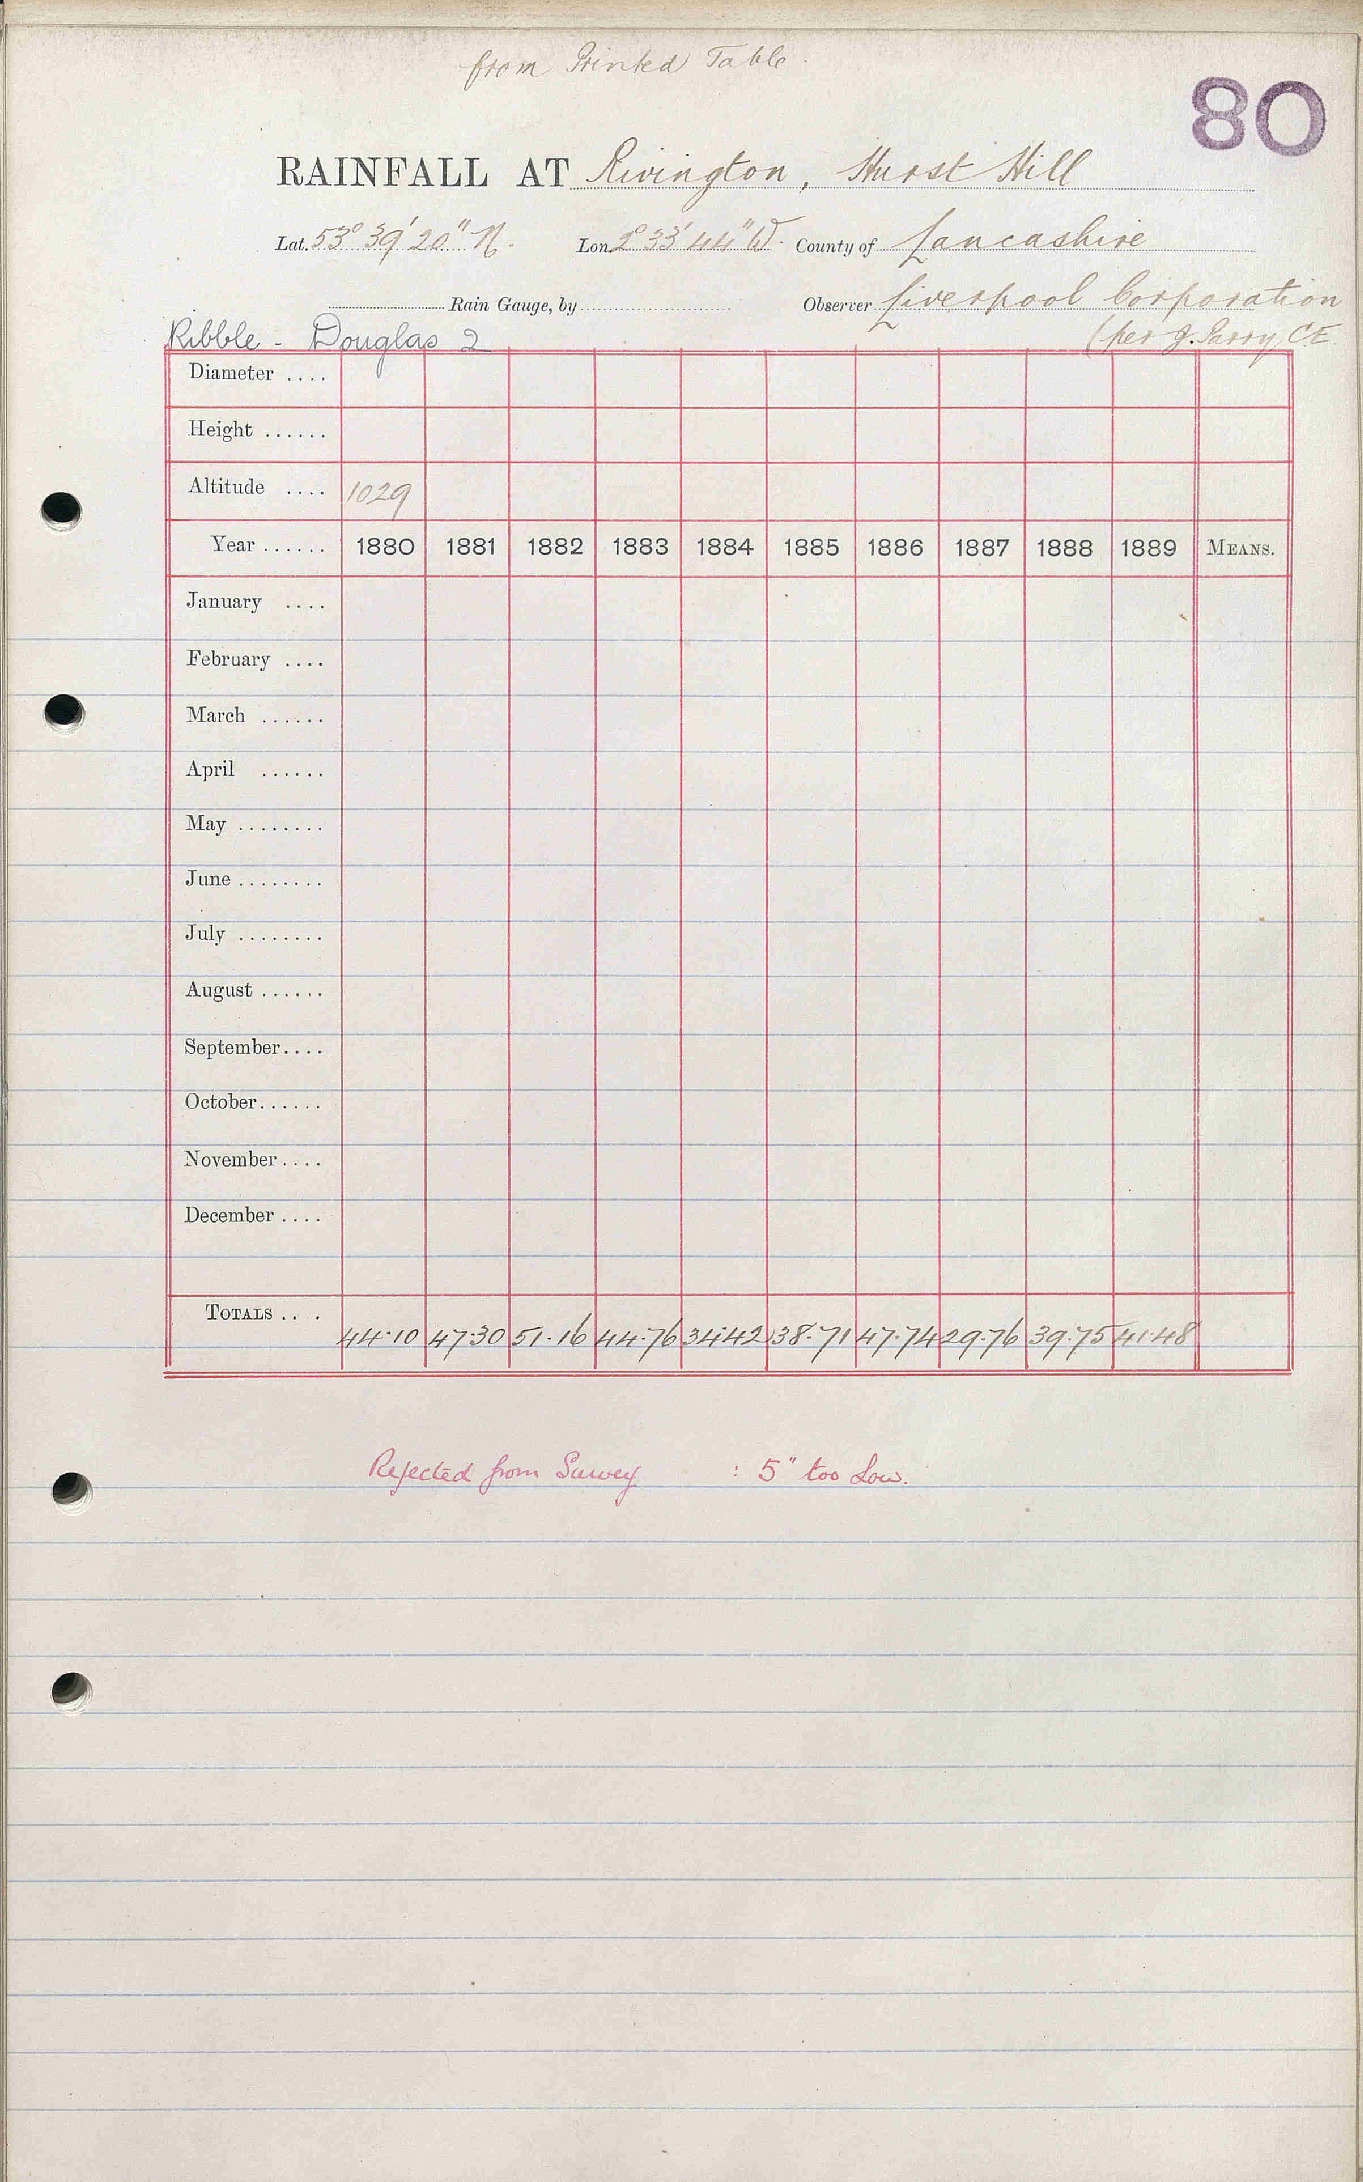 from Printed Table.
80
RAINFALL AT Rivington, Hurst Hill
Lat. 53° 39' 20" N. Lon. 2° 33' 44" W. County of Lancashire
Rain Gauge, by Observer Liverpool Corporation
Ribble - Douglas 2 (per J. Parry, C.E.
Diameter ....
Height ......
Altitude .... 1029
Year ...... 1880 1881 1882 1883 1884 1885 1886 1887 1888 1889 MEANS.
January ....
February ....
March ......
April ......
May ........
June ........
July ........
August ......
September....
October......
November....
December ....
TOTALS .. . 44.10 47.30 51.16 44.76 34.42 38.71 47.74 29.76 39.75 41.48
Rejected from Survey : 5" too Low.